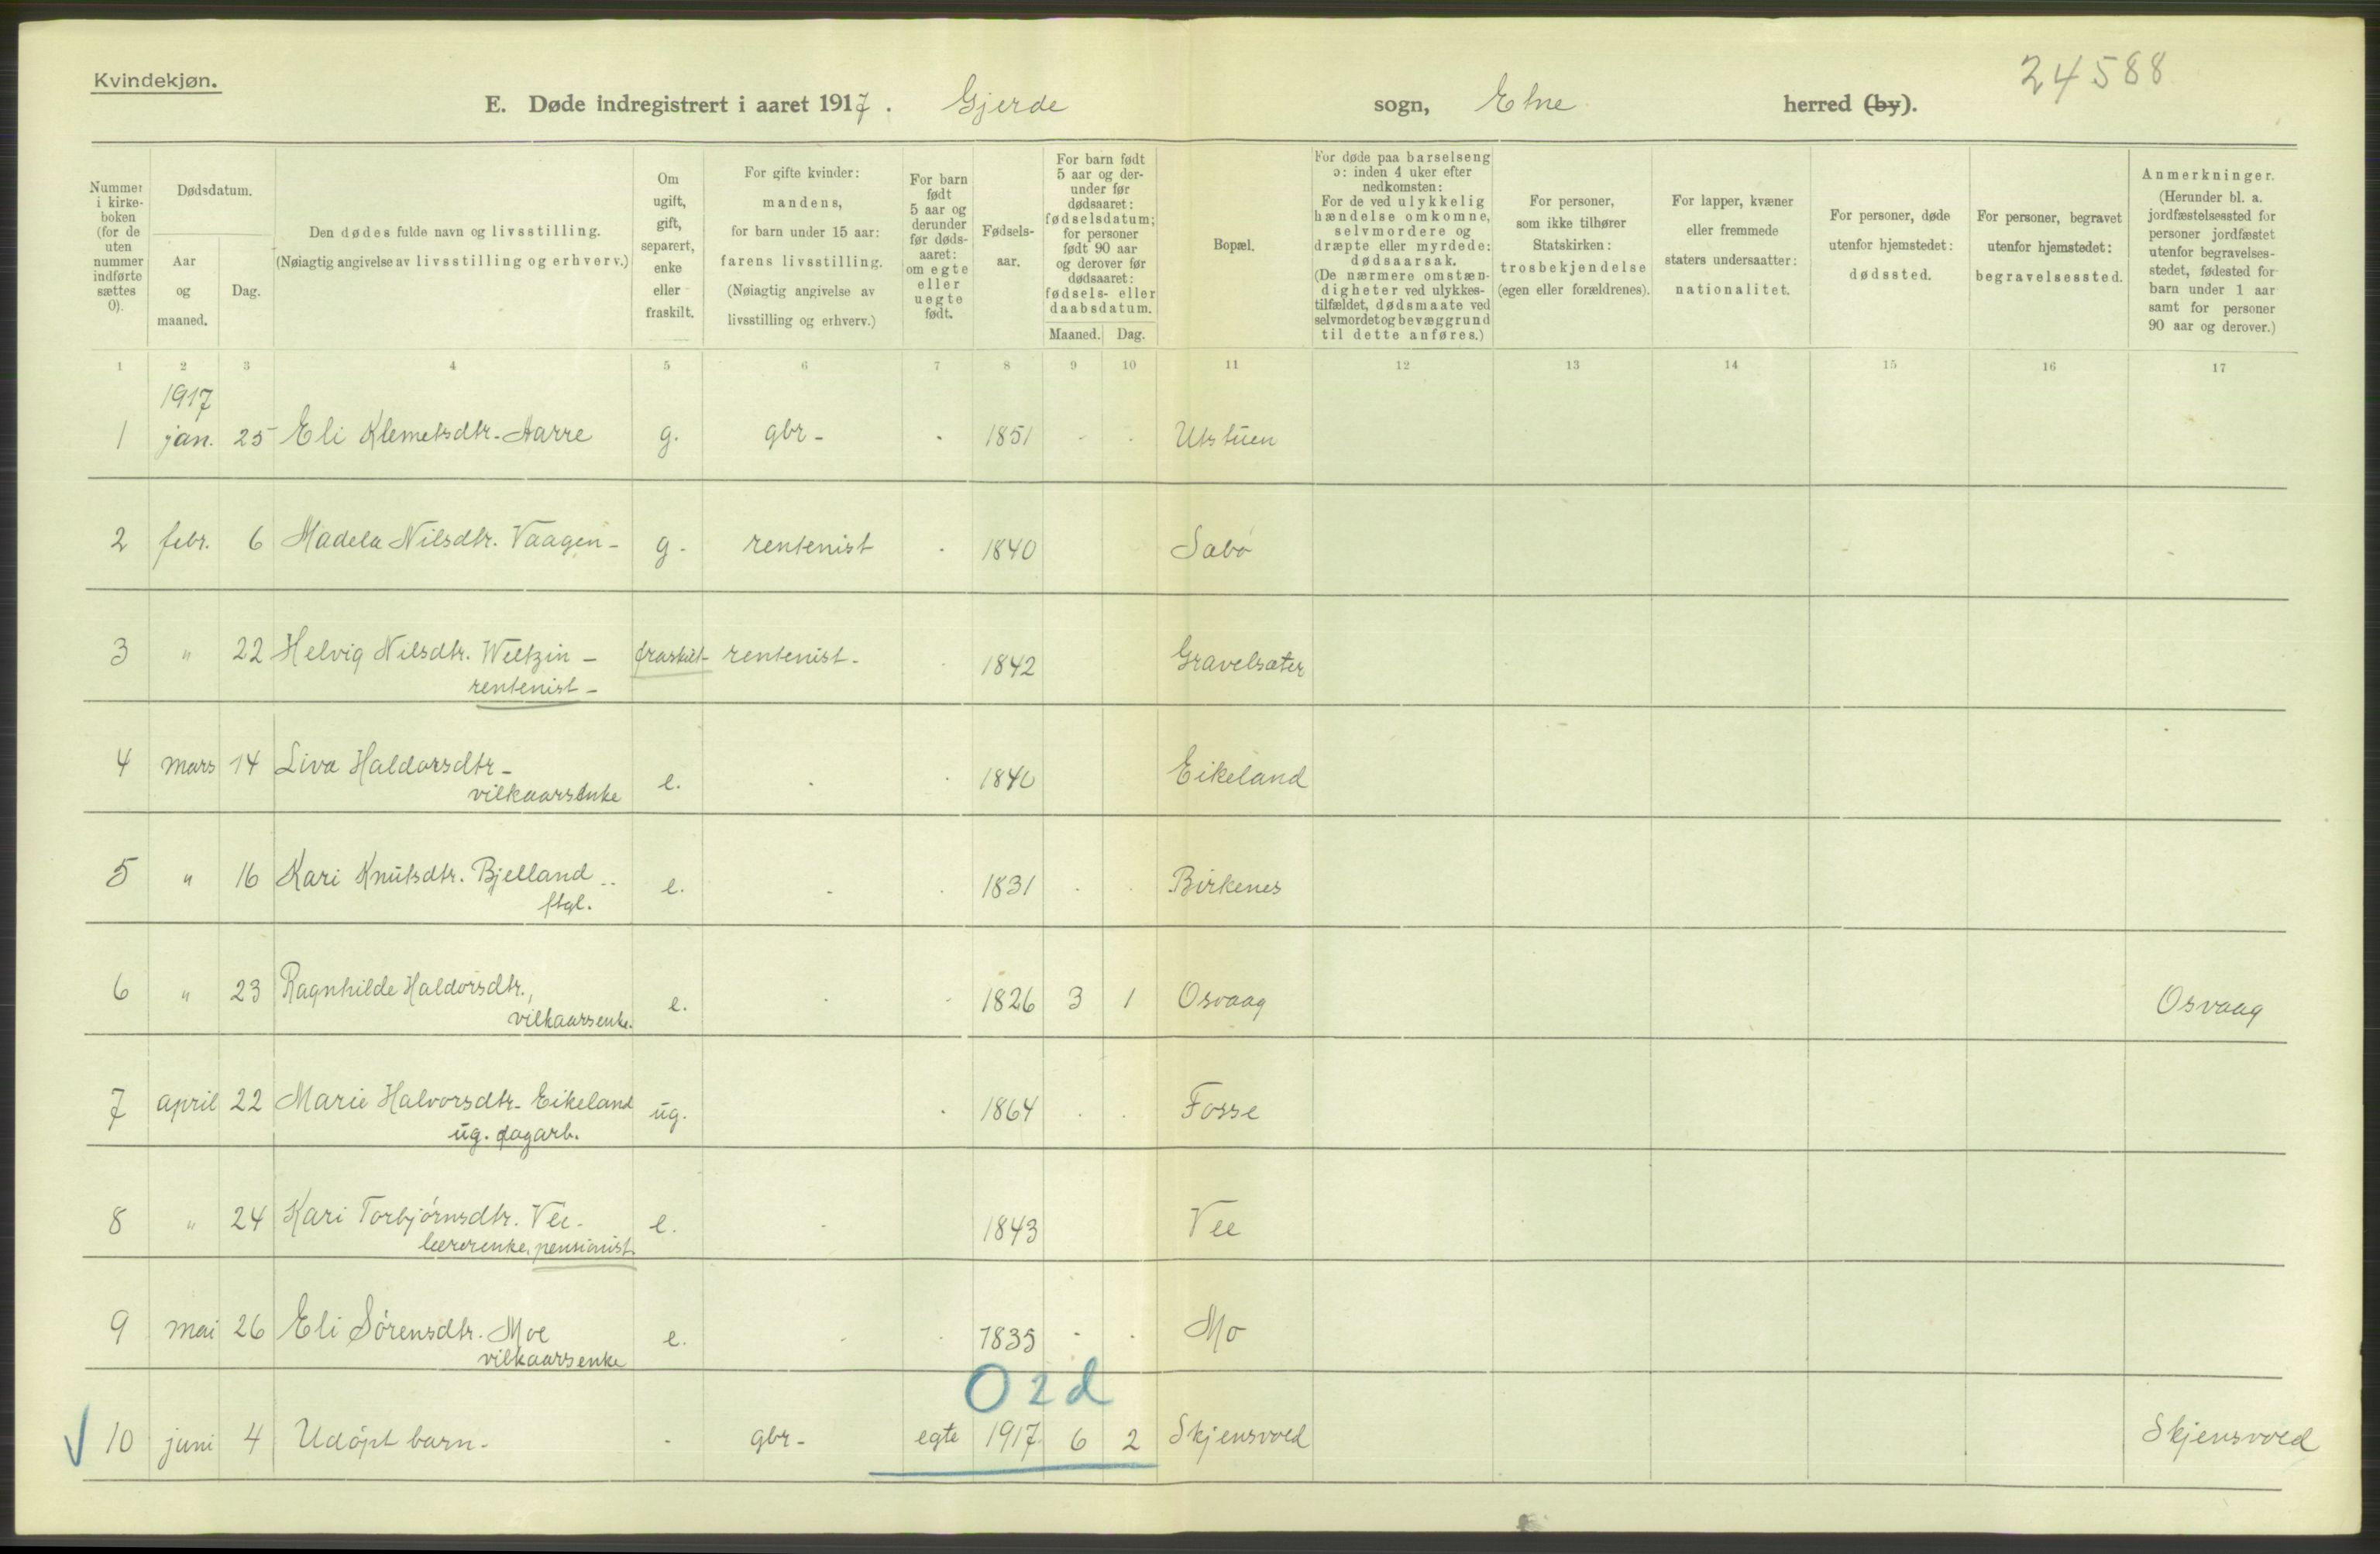 Kvindekjøn.
24588
E. Døde indregistrert i aaret 1917. Gjerde sogn, Etne herred (by).
Nummer i kirkeboken (for de uten nummer indførte sættes 0).
Dødsdatum.
Aar og maaned.
Dag.
Den dødes fulde navn og livsstilling.
(Nøiagtig angivelse av livsstilling og erhverv.)
Om ugift, gift, separert, enke eller fraskilt.
For gifte kvinder: mandens, for barn under 15 aar: farens livsstilling.
(Nøiagtig angivelse av livsstilling og erhverv.)
For barn født 5 aar og derunder før dødsaaret: om egte eller uegte født.
Fødselsaar.
For barn født 5 aar og derunder før dødsaaret: fødselsdatum; for personer født 90 aar og derover før dødsaaret: fødsels- eller daabsdatum.
Maaned. Dag.
Bopæl.
For døde paa barselseng ɔ: inden 4 uker efter nedkomsten:
For de ved ulykkelig hændelse omkomne, selvmordere og dræpte eller myrdede: dødsaarsak.
(De nærmere omstændigheter ved ulykkestilfældet, dødsmaate ved selvmordet og bevæggrund til dette anføres.)
For personer, som ikke tilhører Statskirken: trosbekjendelse (egen eller forældrenes).
For lapper, kvæner eller fremmede staters undersaatter: nationalitet.
For personer, døde utenfor hjemstedet: dødssted.
For personer, begravet utenfor hjemstedet: begravelsessted.
Anmerkninger.
(Herunder bl. a. jordfæstelsessted for personer jordfæstet utenfor begravelsesstedet, fødested for barn under 1 aar samt for personer 90 aar og derover.)
1 2 3 4 5 6 7 8 9 10 11 12 13 14 15 16 17
1917
1 jan. 25 Eli Klemetsdtr. Aarre g. gbr - 1851 Utstuen
2 febr. 6 Madela Nilsdtr. Vaagen - g. rentenist 1840 Sabø
3 " 22 Helvig Nilsdtr. Weltzin - fraskilt rentenist - 1842 Gravelsæter
rentenist -
4 mars 14 Liva Haldorsdtr - e. 1840 Eikeland
vilkaarsenke
5 " 16 Kari Knutsdtr. Bjelland e. 1831 Birkenes
ftgl.
6 " 23 Ragnhilde Haldorsdtr., e. 1826 3 1 Osvaag Osvaag
vilkaarsenke.
7 april 22 Marie Halvorsdtr. Eikeland ug. 1864 Fosse
ug. dagarb.
8 " 24 Kari Torbjørnsdtr. Vee. e. 1843 Vee
lærerenke, pensionist.
9 mai 26 Eli Sørensdtr. Moe e. 1835 Mo
vilkaarsenke
0 2 d
10 juni 4 Udøpt barn - gbr - egte 1917 6 2 Skjensvold Skjensvold